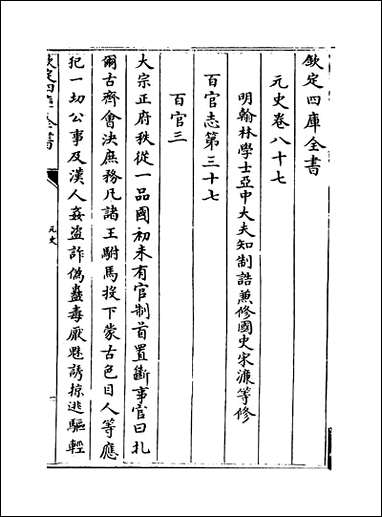 欽定四庫全書
元史卷八十七
明翰林學士亞中大夫知制誥兼修國史宋濂等修
百官志第三十七
百官三
大宗正府秩從一品國初未有官制首置斷事官曰札
爾古齊會決庶務凡諸王駙馬投下蒙古色目人等應
犯一切公事及漢人姦盗詐偽蠱毒厭魅誘掠逃驅輕
欽定四庫全書
元史
一